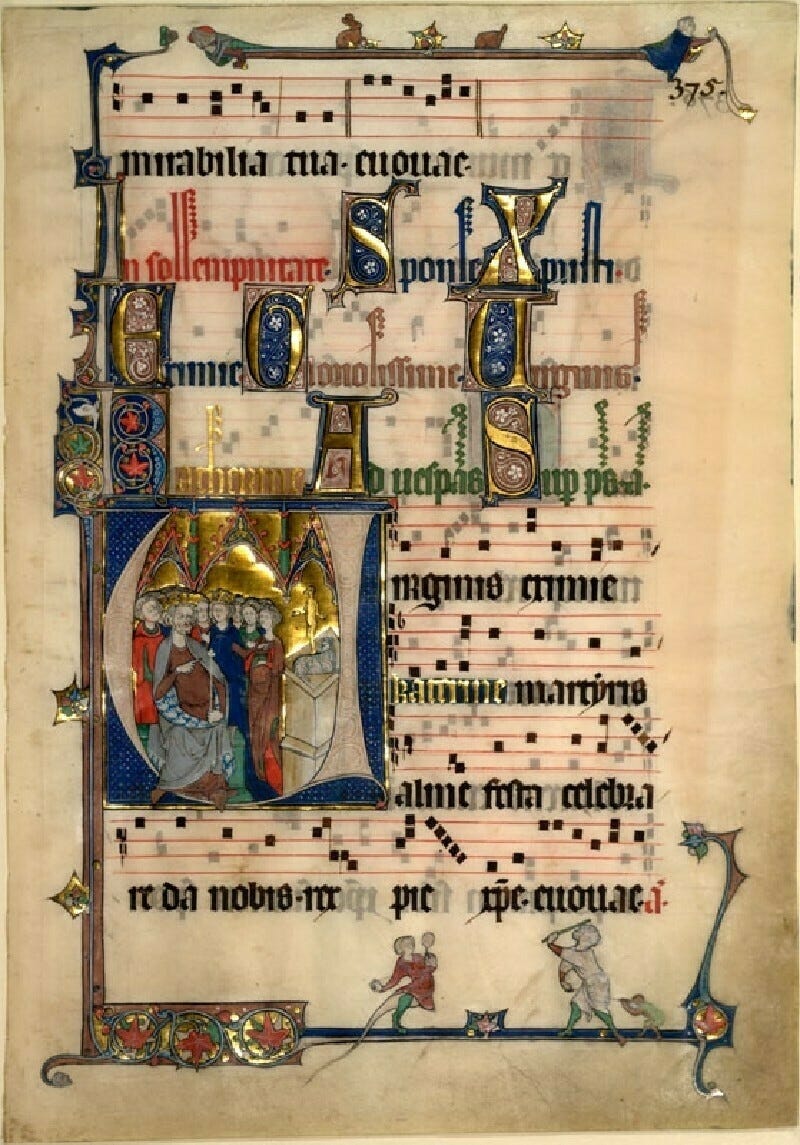 375.
mirabilia tua. euouae.
In sollempnitate. Sponse Xpisti.
Eximie Gloriosissime Uirginis.
Ad uespas Sup psa.
Uirginis eximie
katerine martyris
alme festa celebra
re da nobis. rex pie xpe. euouae. a.